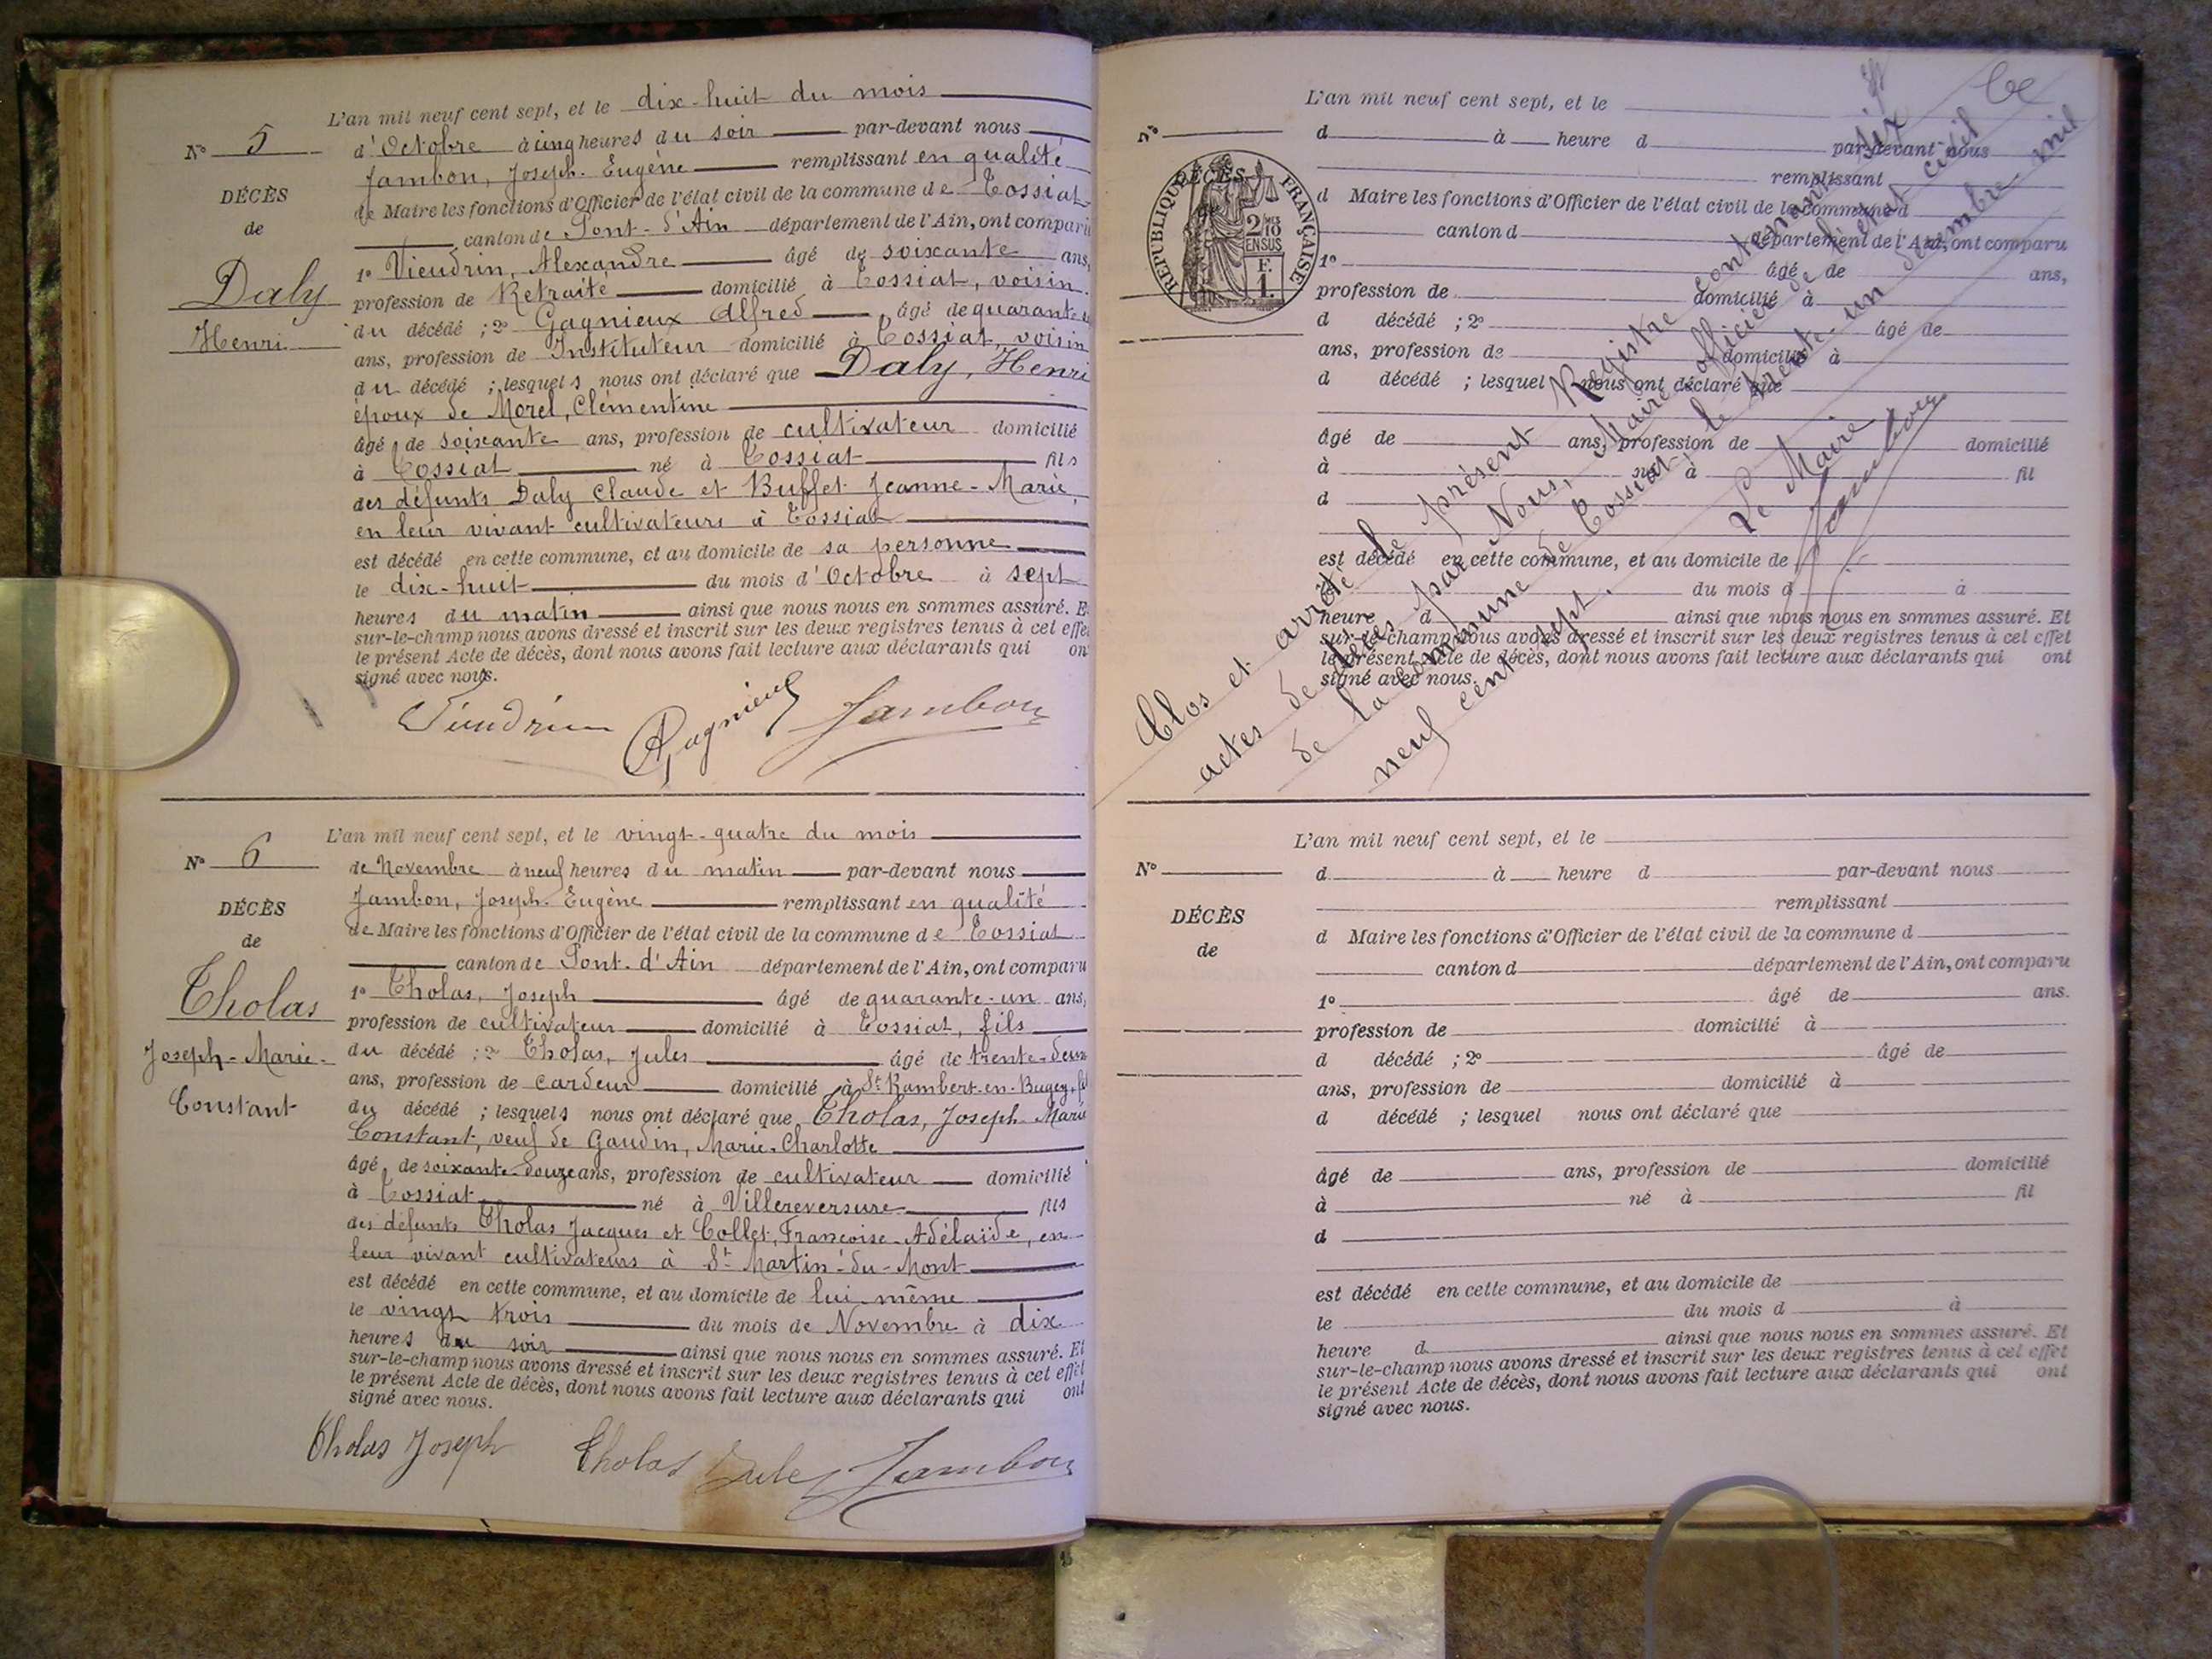 L'an mil neuf cent sept, et le dix-huit du mois
N° 5
d'Octobre à cinq heures du soir par-devant nous
Jambon, Joseph-Eugène remplissant en qualité
DÉCÈS
de Maire les fonctions d'Officier de l'état civil de la commune de Tossiat
de
canton de Pont-d'Ain département de l'Ain, ont comparu
1° Vieudrin, Alexandre âgé de soixante ans,
Daly
profession de Retraité domicilié à Tossiat, voisin
du décédé ; 2° Gagnieux Alfred âgé de quarante
Henri
ans, profession de Instituteur domicilié à Tossiat, voisin
du décédé ; lesquels nous ont déclaré que Daly, Henri
époux de Morel, Clémentine
âgé de soixante ans, profession de cultivateur domicilié
à Tossiat né à Tossiat fils
des défunts Daly Claude et Buffet Jeanne-Marie,
en leur vivant cultivateurs à Tossiat
est décédé en cette commune, et au domicile de sa personne
le dix-huit du mois d'Octobre à sept
heures du matin ainsi que nous nous en sommes assuré. E
sur-le-champ nous avons dressé et inscrit sur les deux registres tenus à cet effe
le présent Acte de décès, dont nous avons fait lecture aux déclarants qui on
signé avec nous.
Vieudrin Gagnieux Jambon
L'an mil neuf cent sept, et le vingt-quatre du mois
N° 6
de Novembre à neuf heures du matin par-devant nous
Jambon, Joseph-Eugène remplissant en qualité
DÉCÈS
de Maire les fonctions d'Officier de l'état civil de la commune de Tossiat
de
canton de Pont-d'Ain département de l'Ain, ont comparu
Tholas
1° Tholas, Joseph âgé de quarante-un ans,
profession de cultivateur domicilié à Tossiat, fils
Joseph-Marie-
du décédé ; 2° Tholas, Jules âgé de trente-deux
ans, profession de cardeur domicilié à St Rambert-en-Bugey, fil
Constant
du décédé ; lesquels nous ont déclaré que Tholas, Joseph-Marie
Constant, veuf de Gaudin, Marie-Charlotte
âgé de soixante-douze ans, profession de cultivateur domicilié
à Tossiat né à Villereversure fils
des défunts Tholas Jacques et Collet, Françoise-Adélaïde, en
leur vivant cultivateurs à St Martin-du-Mont
est décédé en cette commune, et au domicile de lui même
le vingt trois du mois de Novembre à dix
heures du soir ainsi que nous nous en sommes assuré. Et
sur-le-champ nous avons dressé et inscrit sur les deux registres tenus à cet effet
le présent Acte de décès, dont nous avons fait lecture aux déclarants qui ont
signé avec nous.
Tholas Joseph Tholas Jules Jambon
L'an mil neuf cent sept, et le
N°
d à heure d par-devant nous
remplissant
DÉCÈS
de
RÉPUBLIQUE FRANÇAISE
2/10 EN SUS
F. 1.
d Maire les fonctions d'Officier de l'état civil de la commune d
canton d département de l'Ain, ont comparu
1° âgé de ans,
profession de domicilié à
d décédé ; 2° âgé de
ans, profession de domicilié à
d décédé ; lesquel nous ont déclaré que
âgé de ans, profession de domicilié
à né à fil
d
est décédé en cette commune, et au domicile de
le du mois d à
heure d ainsi que nous nous en sommes assuré. Et
sur-le-champ nous avons dressé et inscrit sur les deux registres tenus à cet effet
le présent Acte de décès, dont nous avons fait lecture aux déclarants qui ont
signé avec nous.
Clos et arrêté le présent Registre contenant six
actes de décès par Nous, Maire officier de l'état civil
de la commune de Tossiat, le trente-un décembre mil
neuf cent sept.
Le Maire
Jambon
L'an mil neuf cent sept, et le
N°
d à heure d par-devant nous
remplissant
DÉCÈS
d Maire les fonctions d'Officier de l'état civil de la commune d
de
canton d département de l'Ain, ont comparu
1° âgé de ans.
profession de domicilié à
d décédé ; 2° âgé de
ans, profession de domicilié à
d décédé ; lesquel nous ont déclaré que
âgé de ans, profession de domicilié
à né à fil
d
est décédé en cette commune, et au domicile de
le du mois d à
heure d ainsi que nous nous en sommes assuré. Et
sur-le-champ nous avons dressé et inscrit sur les deux registres tenus à cet effet
le présent Acte de décès, dont nous avons fait lecture aux déclarants qui ont
signé avec nous.